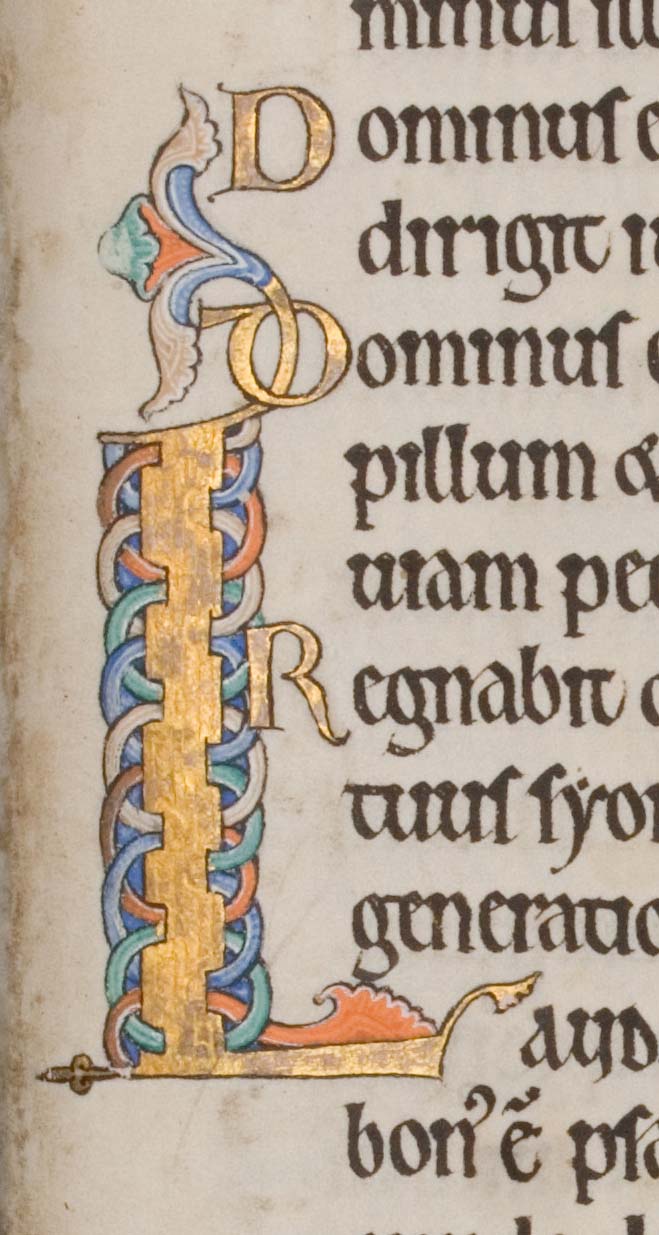 Dominuſ e
dirigit i
Dominuſ c
pillum &
uiam pec
Regnabit
tuuſ ſyon
generatio
Laud
bonꝰ ē pſa